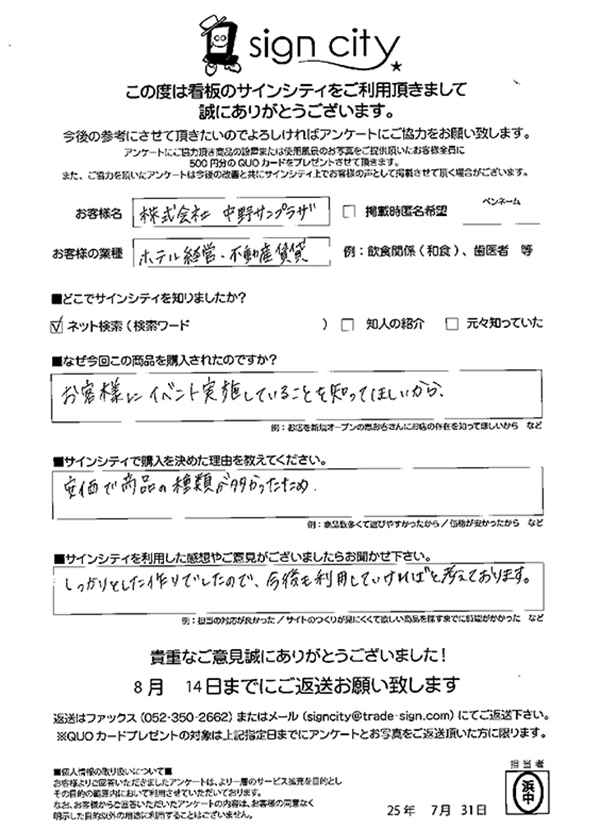 sign city
この度は看板のサインシティをご利用頂きまして
誠にありがとうございます。
今後の参考にさせて頂きたいのでよろしければアンケートにご協力をお願い致します。
アンケートにご協力頂き商品の設置または使用風景のお写真をご提供頂いたお客様全員に
500円分のQUOカードをプレゼントさせて頂きます。
また、ご協力を頂いたアンケートは今後の改善と共にサインシティ上でお客様の声として掲載させて頂く場合がございます。
お客様名 株式会社 中野サンプラザ □ 掲載時匿名希望 ペンネーム
お客様の業種 ホテル経営・不動産賃貸 例：飲食関係（和食）、歯医者 等
■どこでサインシティを知りましたか？
☑ ネット検索（検索ワード ） □ 知人の紹介 □ 元々知っていた
■なぜ今回この商品を購入されたのですか？
お客様にイベント実施していることを知ってほしいから、
例：お店を新規オープンの為お客さんにお店の存在を知ってほしいから など
■サインシティで購入を決めた理由を教えてください。
安価で商品の種類が多かったため.
例：商品数多くて選びやすかったから／価格が安かったから など
■サインシティを利用した感想やご意見がございましたらお聞かせ下さい。
しっかりとした作りでしたので、今後も利用していければと考えております。
例：担当の対応が良かった／サイトのつくりが見にくくて欲しい商品を探すまでに時間がかかった など
貴重なご意見誠にありがとうございました！
8月 14日までにご返送お願い致します
返送はファックス（052-350-2662）またはメール（signcity@trade-sign.com）にてご返送下さい。
※QUOカードプレゼントの対象は上記指定日までにアンケートとお写真をご返送頂いた方に限ります。
■個人情報の取り扱いについて■
お客様よりご回答いただきましたアンケートは、より一層のサービス拡充を目的とし
その目的の範囲内において利用させていただいております。
なお、お客様からご回答いただいたアンケートの内容は、お客様の同意なく
明示した目的以外の用途に利用することはございません。
25年 7月 31日
担当者
浜中